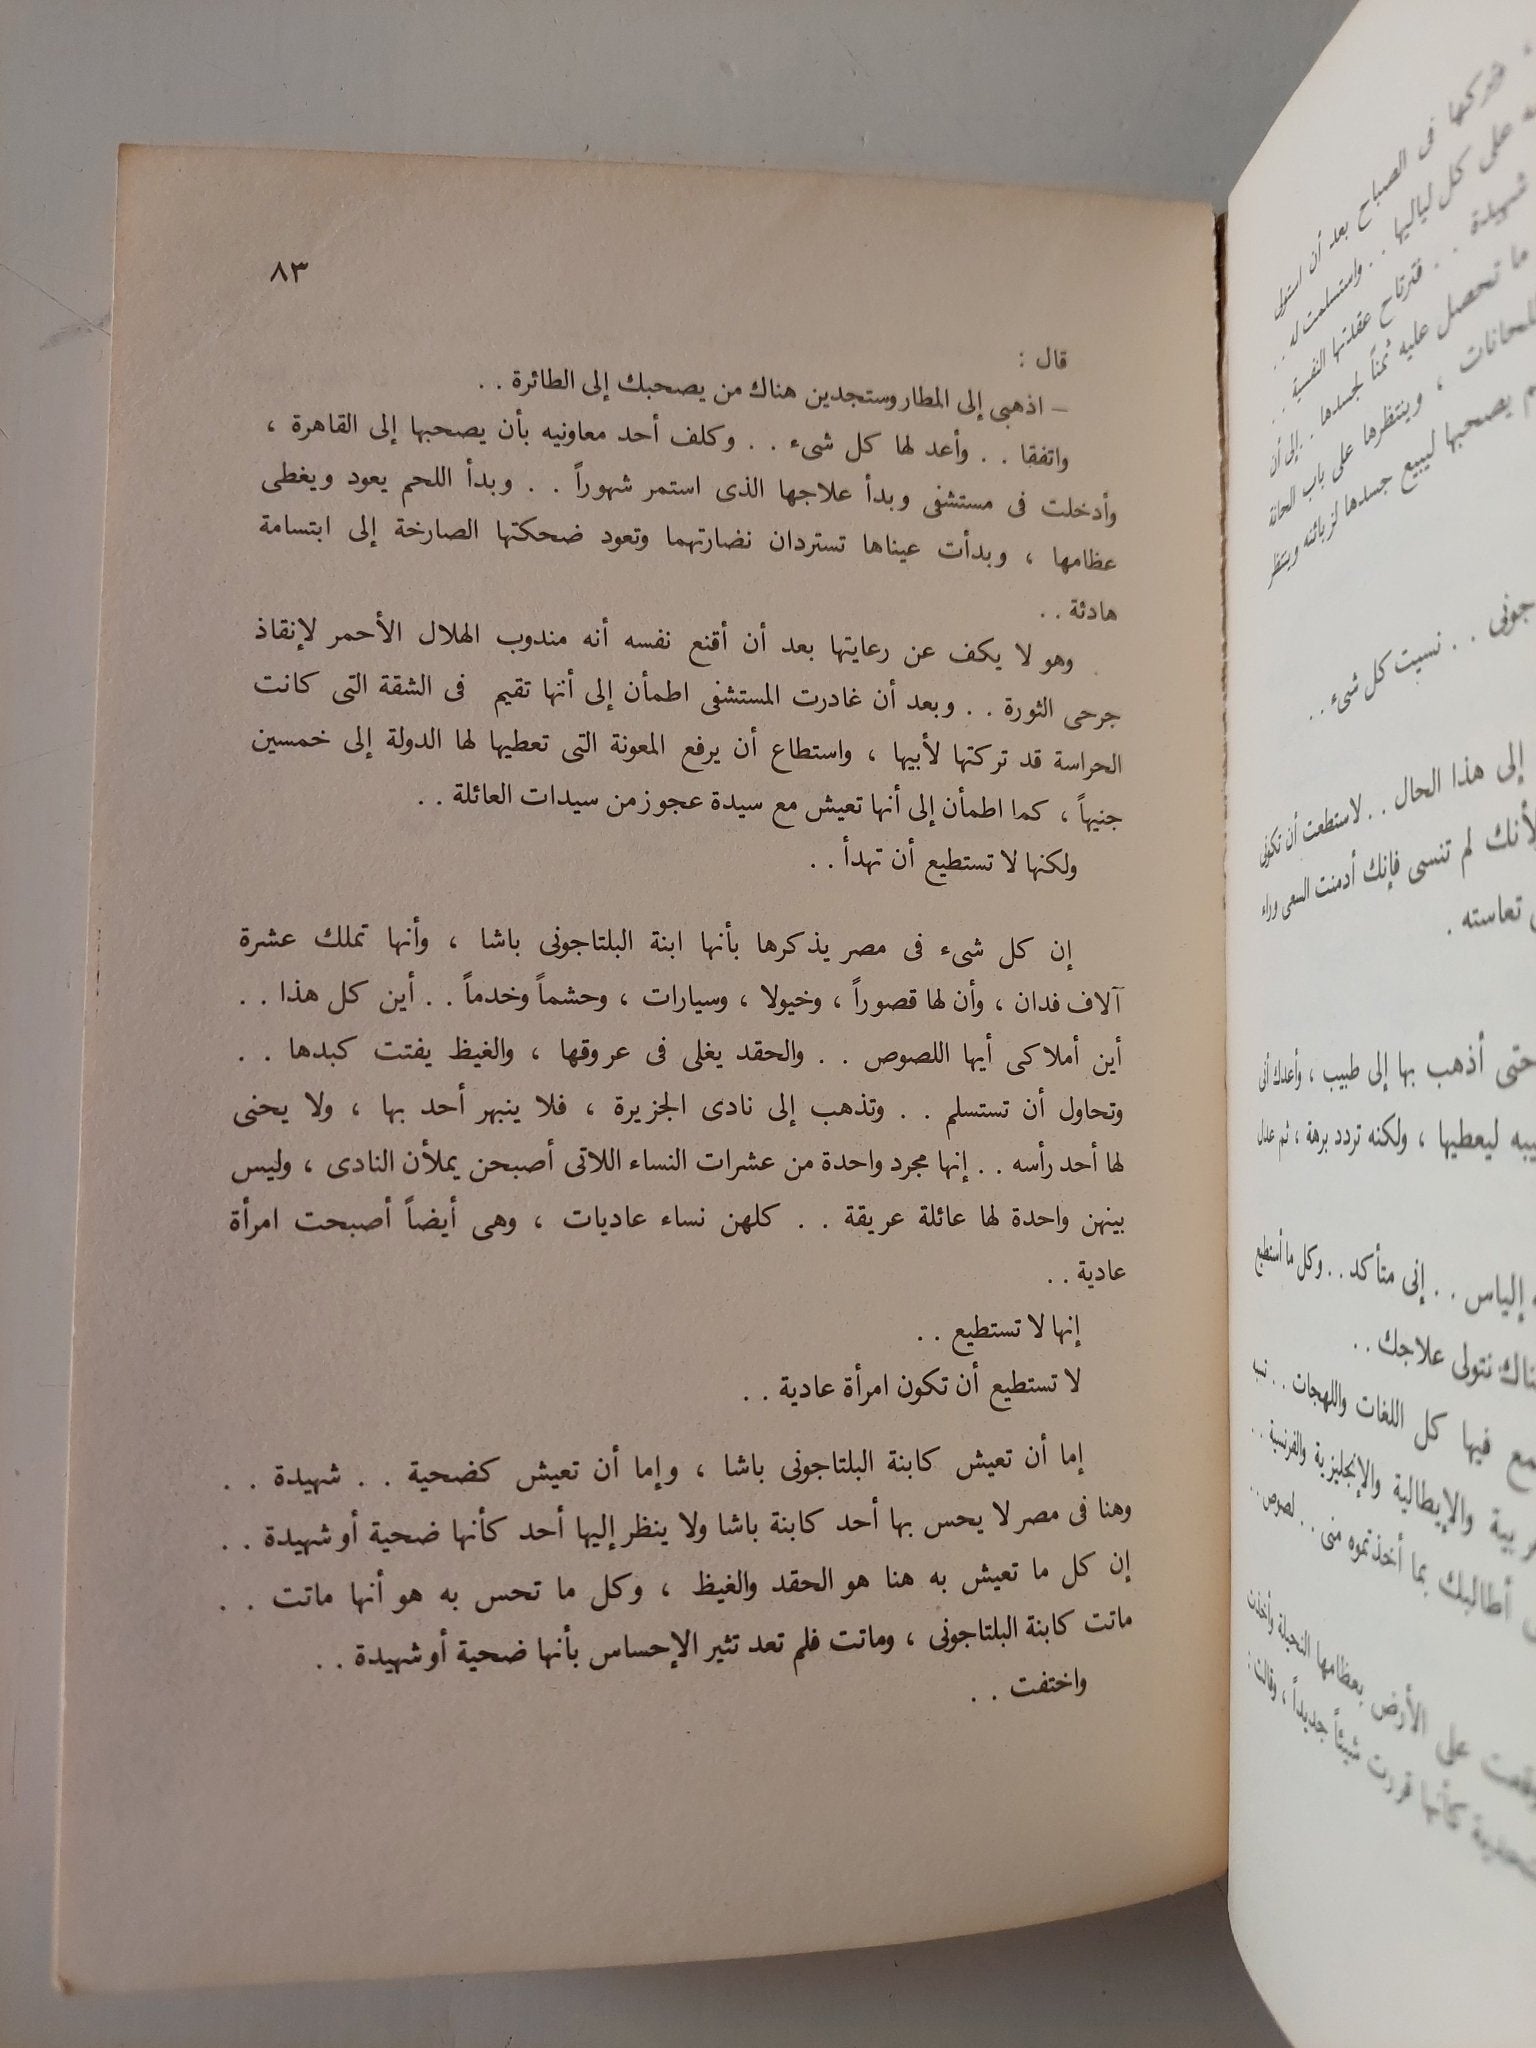 وتركها فى الصباح بعد أن استولى
على كل لياليها . . واستسلمت له . .
شهيدة . . فترتاح عقلتها النفسية . .
ما تحصل عليه ثمناً لجسدها . . إلى أن
للحانات ، وينتظرها على باب الحانة
يصحبها ليبيع جسدها لزبائنه وينتظر
جونى . . نسيت كل شىء . .
إلى هذا الحال . . لاستطعت أن تكونى
لأنك لم تنسى فإنك أدمنت السعى وراء
تعاسته .
حتى أذهب بها إلى طبيب ، وأعدك أنى
ليعطيها ، ولكنه تردد برهة ، ثم عدل
إلياس . . إنى متأكد . . وكل ما أستطيع
نتولى علاجك . .
فيها كل اللغات واللهجات . . تسبه
والإيطالية والإنجليزية والفرنسية . .
أطالبك بما أخذتموه منى . . لصوص . .
على الأرض بعظامها النحيلة وأخذت
كأنها قررت شيئاً جديداً ، وقالت :
٨٣
قال :
– اذهبى إلى المطار وستجدين هناك من يصحبك إلى الطائرة . .
واتفقا . . وأعد لها كل شىء . . وكلف أحد معاونيه بأن يصحبها إلى القاهرة ،
وأدخلت فى مستشفى وبدأ علاجها الذى استمر شهوراً . . وبدأ اللحم يعود ويغطى
عظامها ، وبدأت عيناها تستردان نضارتهما وتعود ضحكتها الصارخة إلى ابتسامة
هادئة . .
وهو لا يكف عن رعايتها بعد أن أقنع نفسه أنه مندوب الهلال الأحمر لإنقاذ
جرحى الثورة . . وبعد أن غادرت المستشفى اطمأن إلى أنها تقيم فى الشقة التى كانت
الحراسة قد تركتها لأبيها ، واستطاع أن يرفع المعونة التى تعطيها لها الدولة إلى خمسين
جنيهاً ، كما اطمأن إلى أنها تعيش مع سيدة عجوز من سيدات العائلة . .
ولكنها لا تستطيع أن تهدأ . .
إن كل شىء فى مصر يذكرها بأنها ابنة البلتاجونى باشا ، وأنها تملك عشرة
آلاف فدان ، وأن لها قصوراً ، وخيولا ، وسيارات ، وحشماً وخدماً . . أين كل هذا . .
أين أملاكى أيها اللصوص . . والحقد يغلى فى عروقها ، والغيظ يفتت كبدها . .
وتحاول أن تستسلم . . وتذهب إلى نادى الجزيرة ، فلا ينبهر أحد بها ، ولا يحنى
لها أحد رأسه . . إنها مجرد واحدة من عشرات النساء اللاتى أصبحن يملأن النادى ، وليس
بينهن واحدة لها عائلة عريقة . . كلهن نساء عاديات ، وهى أيضاً أصبحت امرأة
عادية . .
إنها لا تستطيع . .
لا تستطيع أن تكون امرأة عادية . .
إما أن تعيش كابنة البلتاجونى باشا ، وإما أن تعيش كضحية . . شهيدة . .
وهنا فى مصر لا يحس بها أحد كابنة باشا ولا ينظر إليها أحد كأنها ضحية أو شهيدة . .
إن كل ما تعيش به هنا هو الحقد والغيظ ، وكل ما تحس به هو أنها ماتت . .
ماتت كابنة البلتاجونى ، وماتت فلم تعد تثير الإحساس بأنها ضحية أو شهيدة . .
واختفت . .